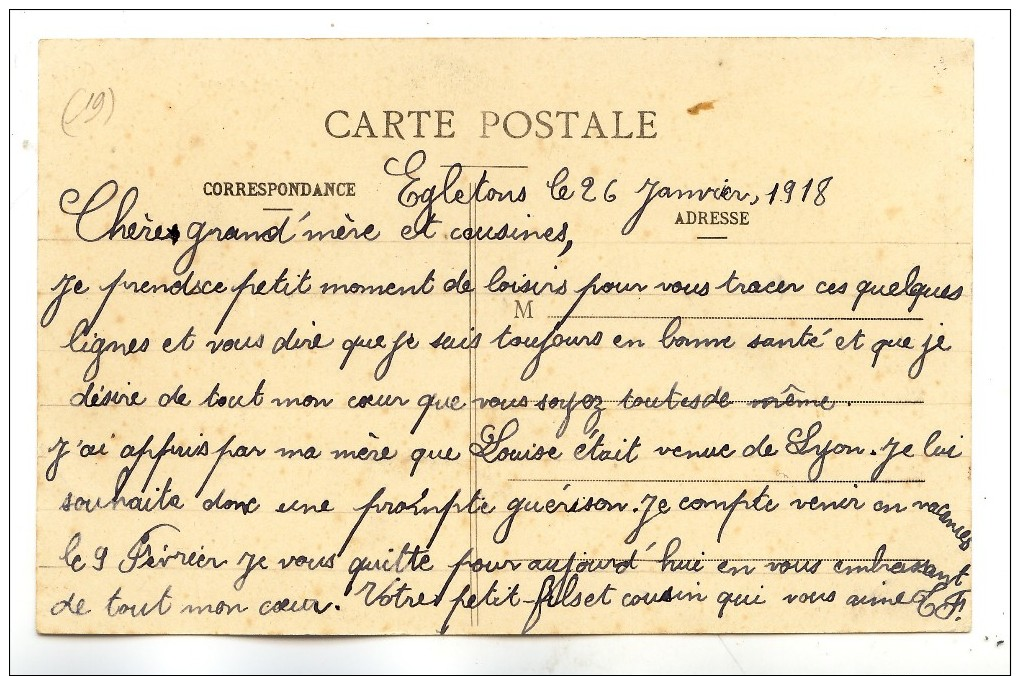 (19)
CARTE POSTALE
CORRESPONDANCE
Egletons le 26 Janvier, 1918
ADRESSE
Chère grand'mère et cousines,
Je prends ce petit moment de loisirs pour vous tracer ces quelques
M
lignes et vous dire que je suis toujours en bonne santé et que je
désire de tout mon cœur que vous soyez toutes de même.
J'ai appris par ma mère que Louise était venue de Lyon. Je lui
souhaite donc une prompte guérison. Je compte venir en vacances
le 9 Février Je vous quitte pour aujourd'hui en vous embrassant
de tout mon cœur. Votre petit-fils et cousin qui vous aime